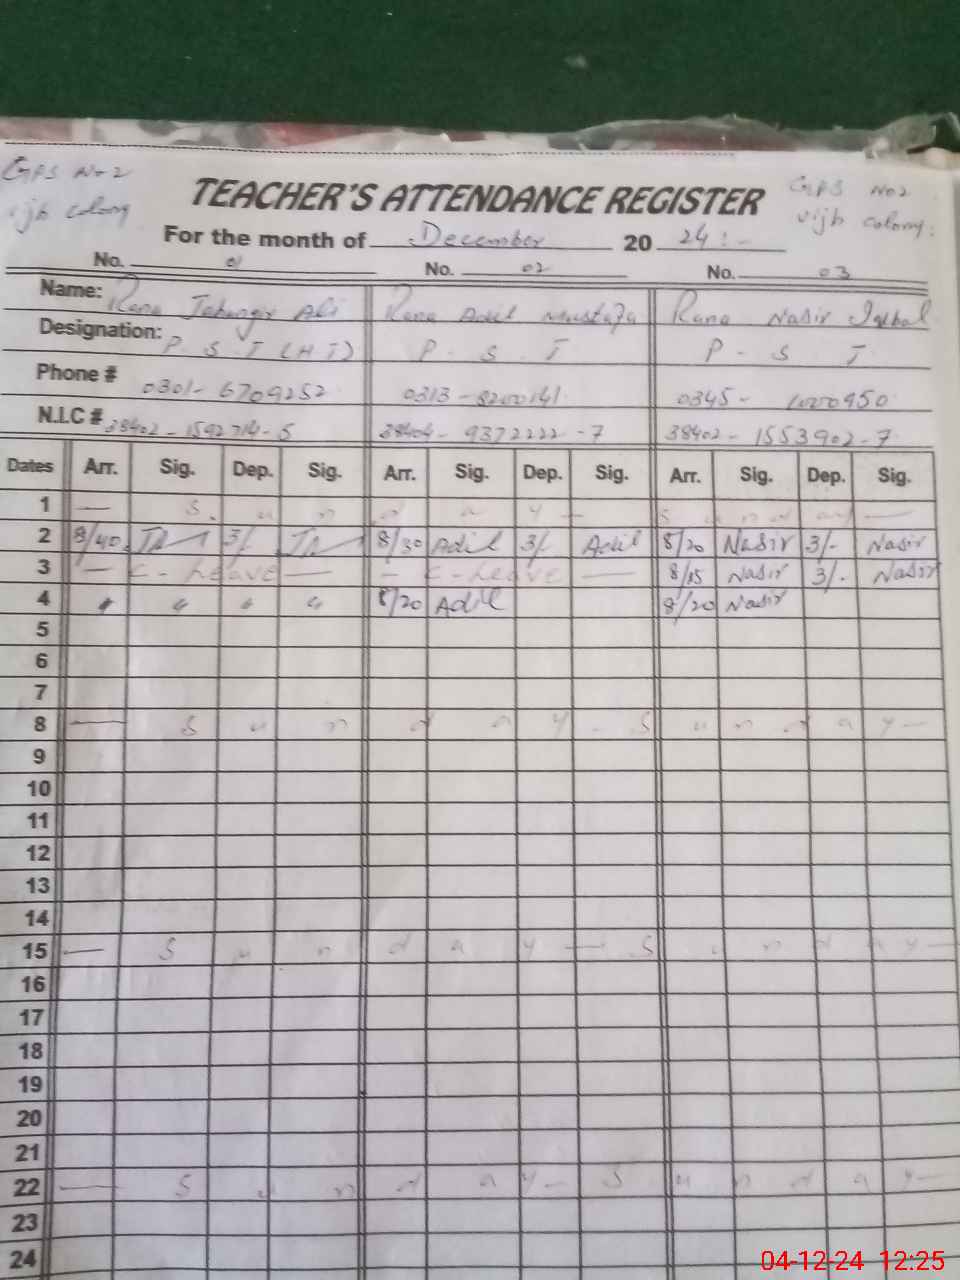 GPS No 2 GPS No 2
vijh colony TEACHER'S ATTENDANCE REGISTER vijh colony:
For the month of December 20 24:-
No. 01 No. 02 No. 03
Name: Rana Jahangir Ali Rana Adil Mustafa Rana Nasir Iqbal
Designation: P. S. T (H T) P - S . T P - S T
Phone # 0301-6709252 0313-8200141 0345-1000950
N.I.C # 38402-1592714-5 38404-9372222-7 38402-1553902-7
Dates Arr. Sig. Dep. Sig. Arr. Sig. Dep. Sig. Arr. Sig. Dep. Sig.
1 — S u n d a y — S u n d a y —
2 8/40 3/- 8/30 Adil 3/- Adil 8/20 Nasir 3/- Nasir
3 — C-Leave — — C-Leave — 8/15 Nasir 3/- Nasir
4 " " " " 8/20 Adil 8/20 Nasir
5
6
7
8 — S u n d a y - S u n d a y —
9
10
11
12
13
14
15 — S u n d a y — S u n d a y —
16
17
18
19
20
21
22 — S u n d a y — S u n d a y —
23
24
04-12-24 12:25